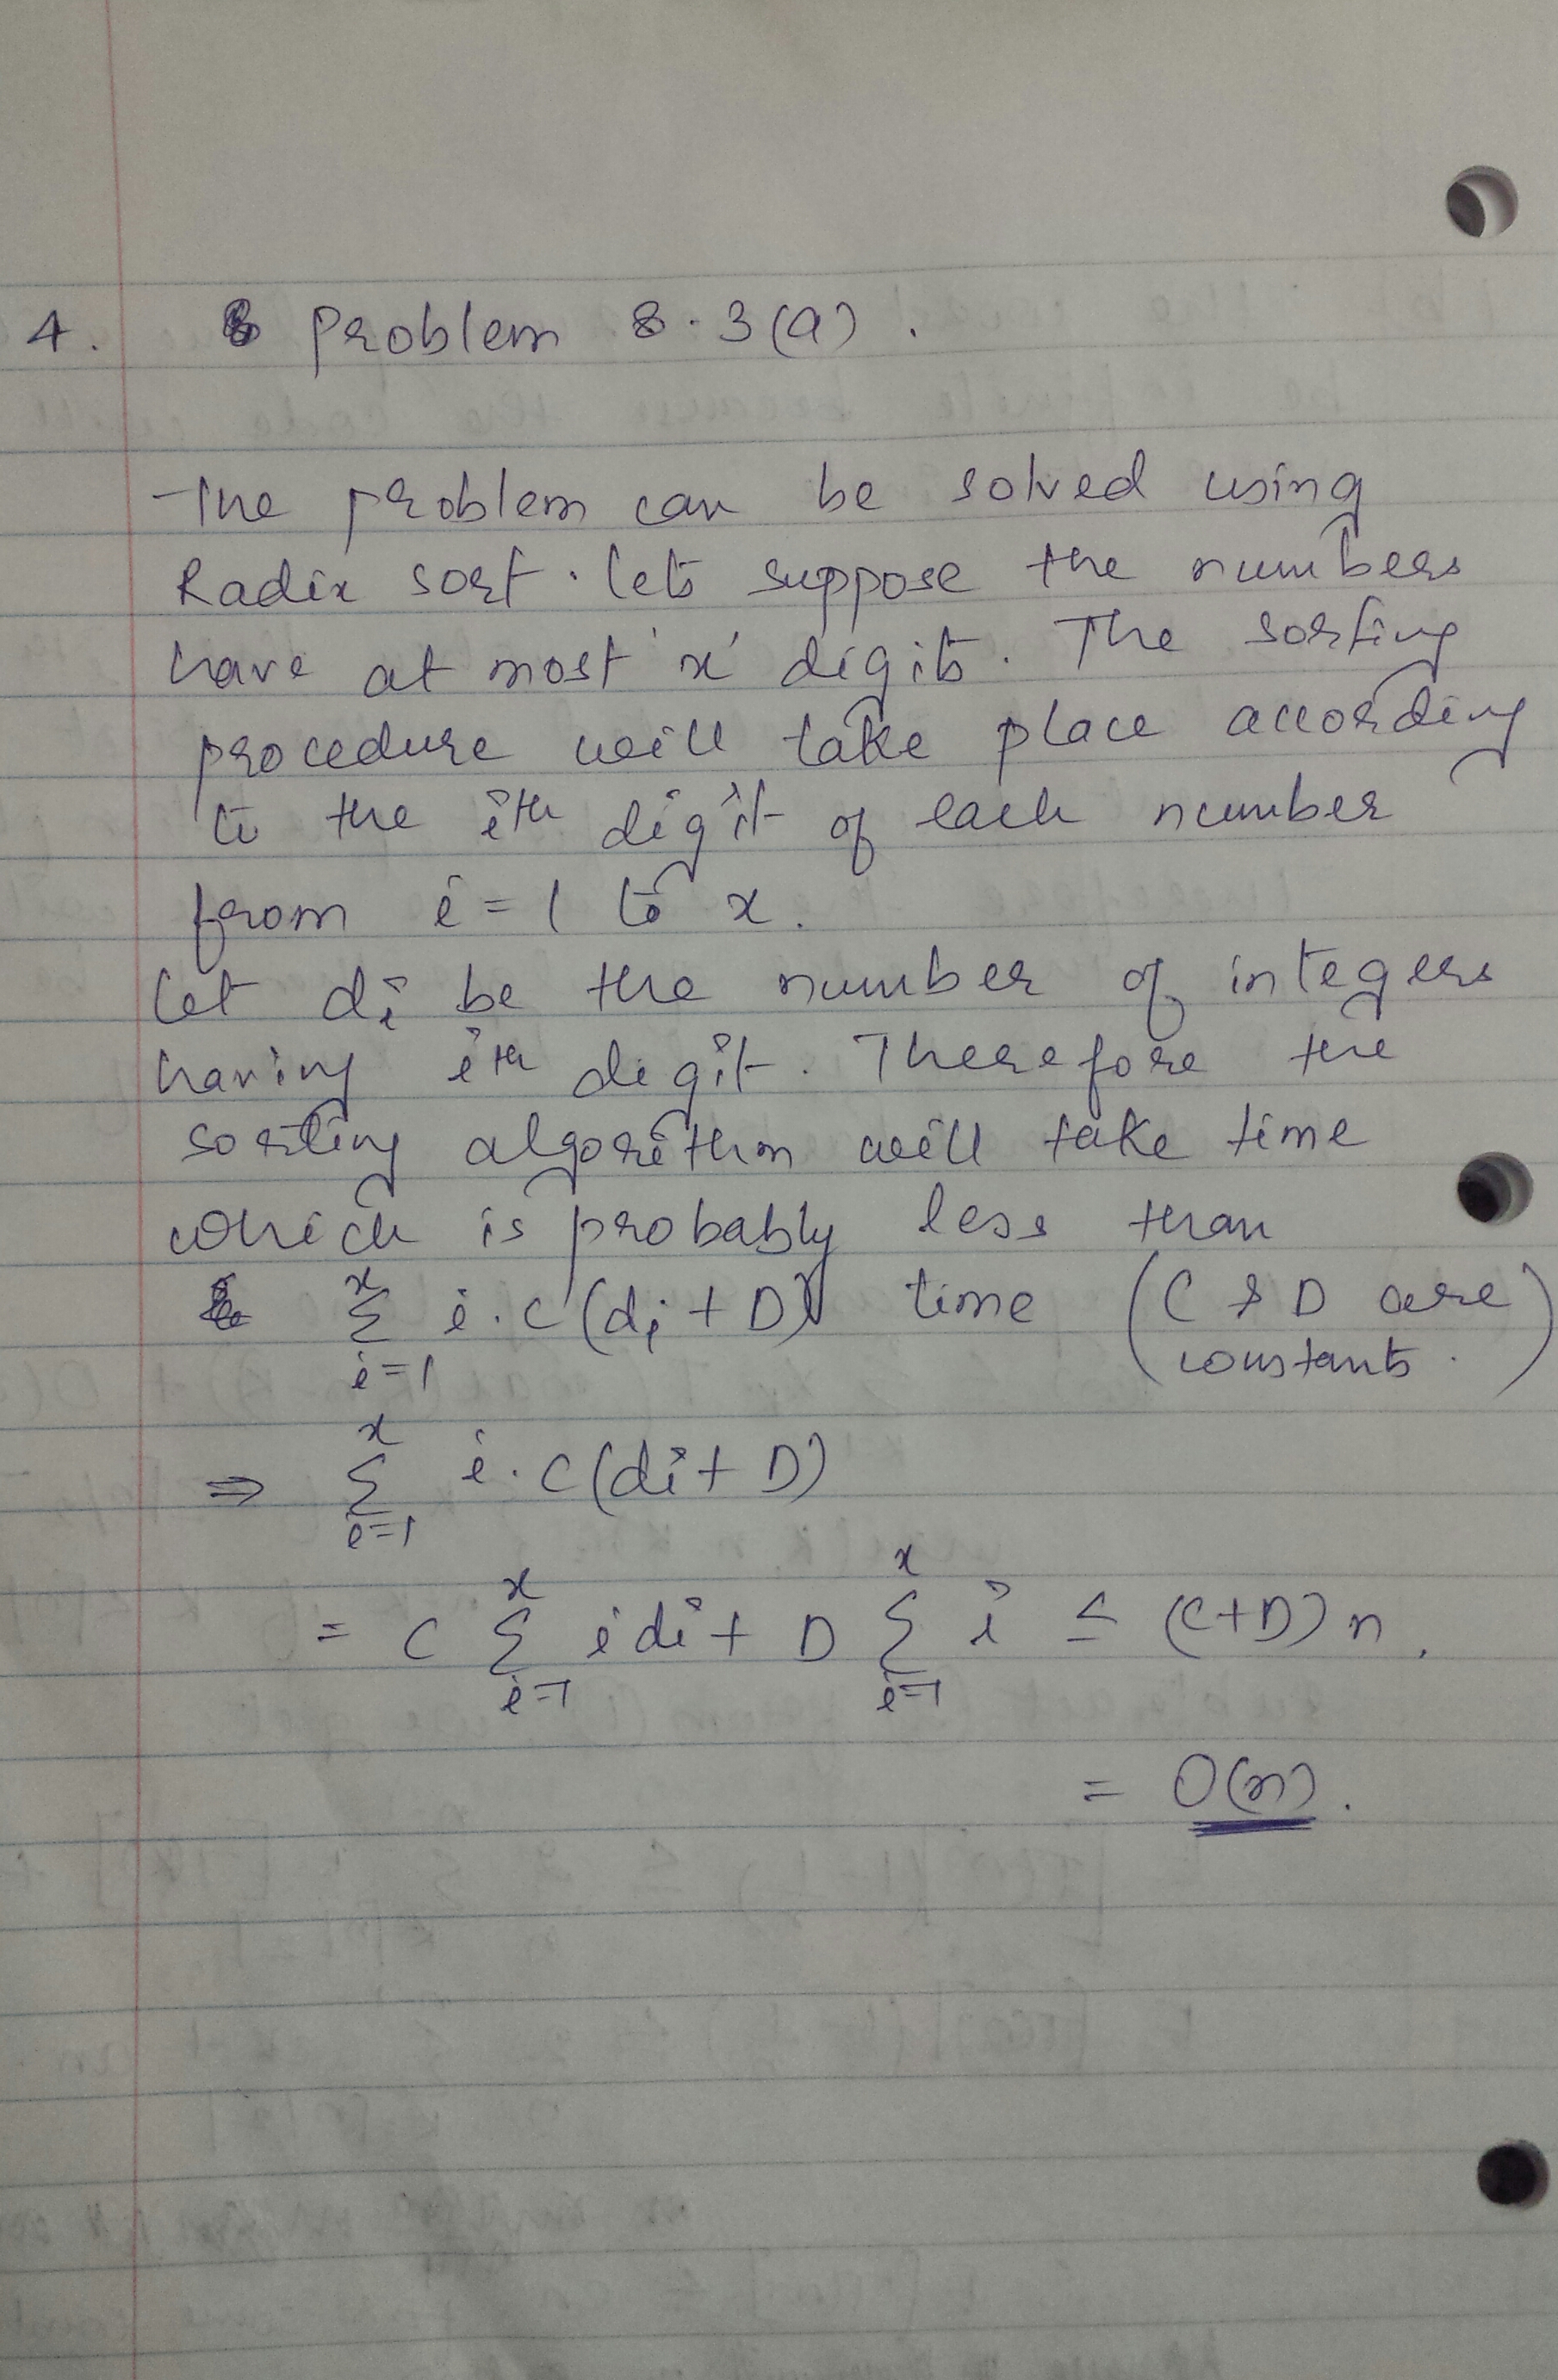 4. Problem 8.3(a).
The problem can be solved using
Radix sort. lets suppose the numbers
have at most 'x' digits. The sorting
procedure will take place according
to the ith digit of each number
from i = 1 to x.
let di be the number of integers
having ith digit. Therefore the
sorting algorithm will take time
which is probably less than
x
Σ i.c(di + D) time (C & D are
i=1 constants.)
x
⇒ Σ i.c(di + D)
i=1
x x
= C Σ idi + D Σ i ≤ (C+D)n.
i=1 i=1
= O(n).